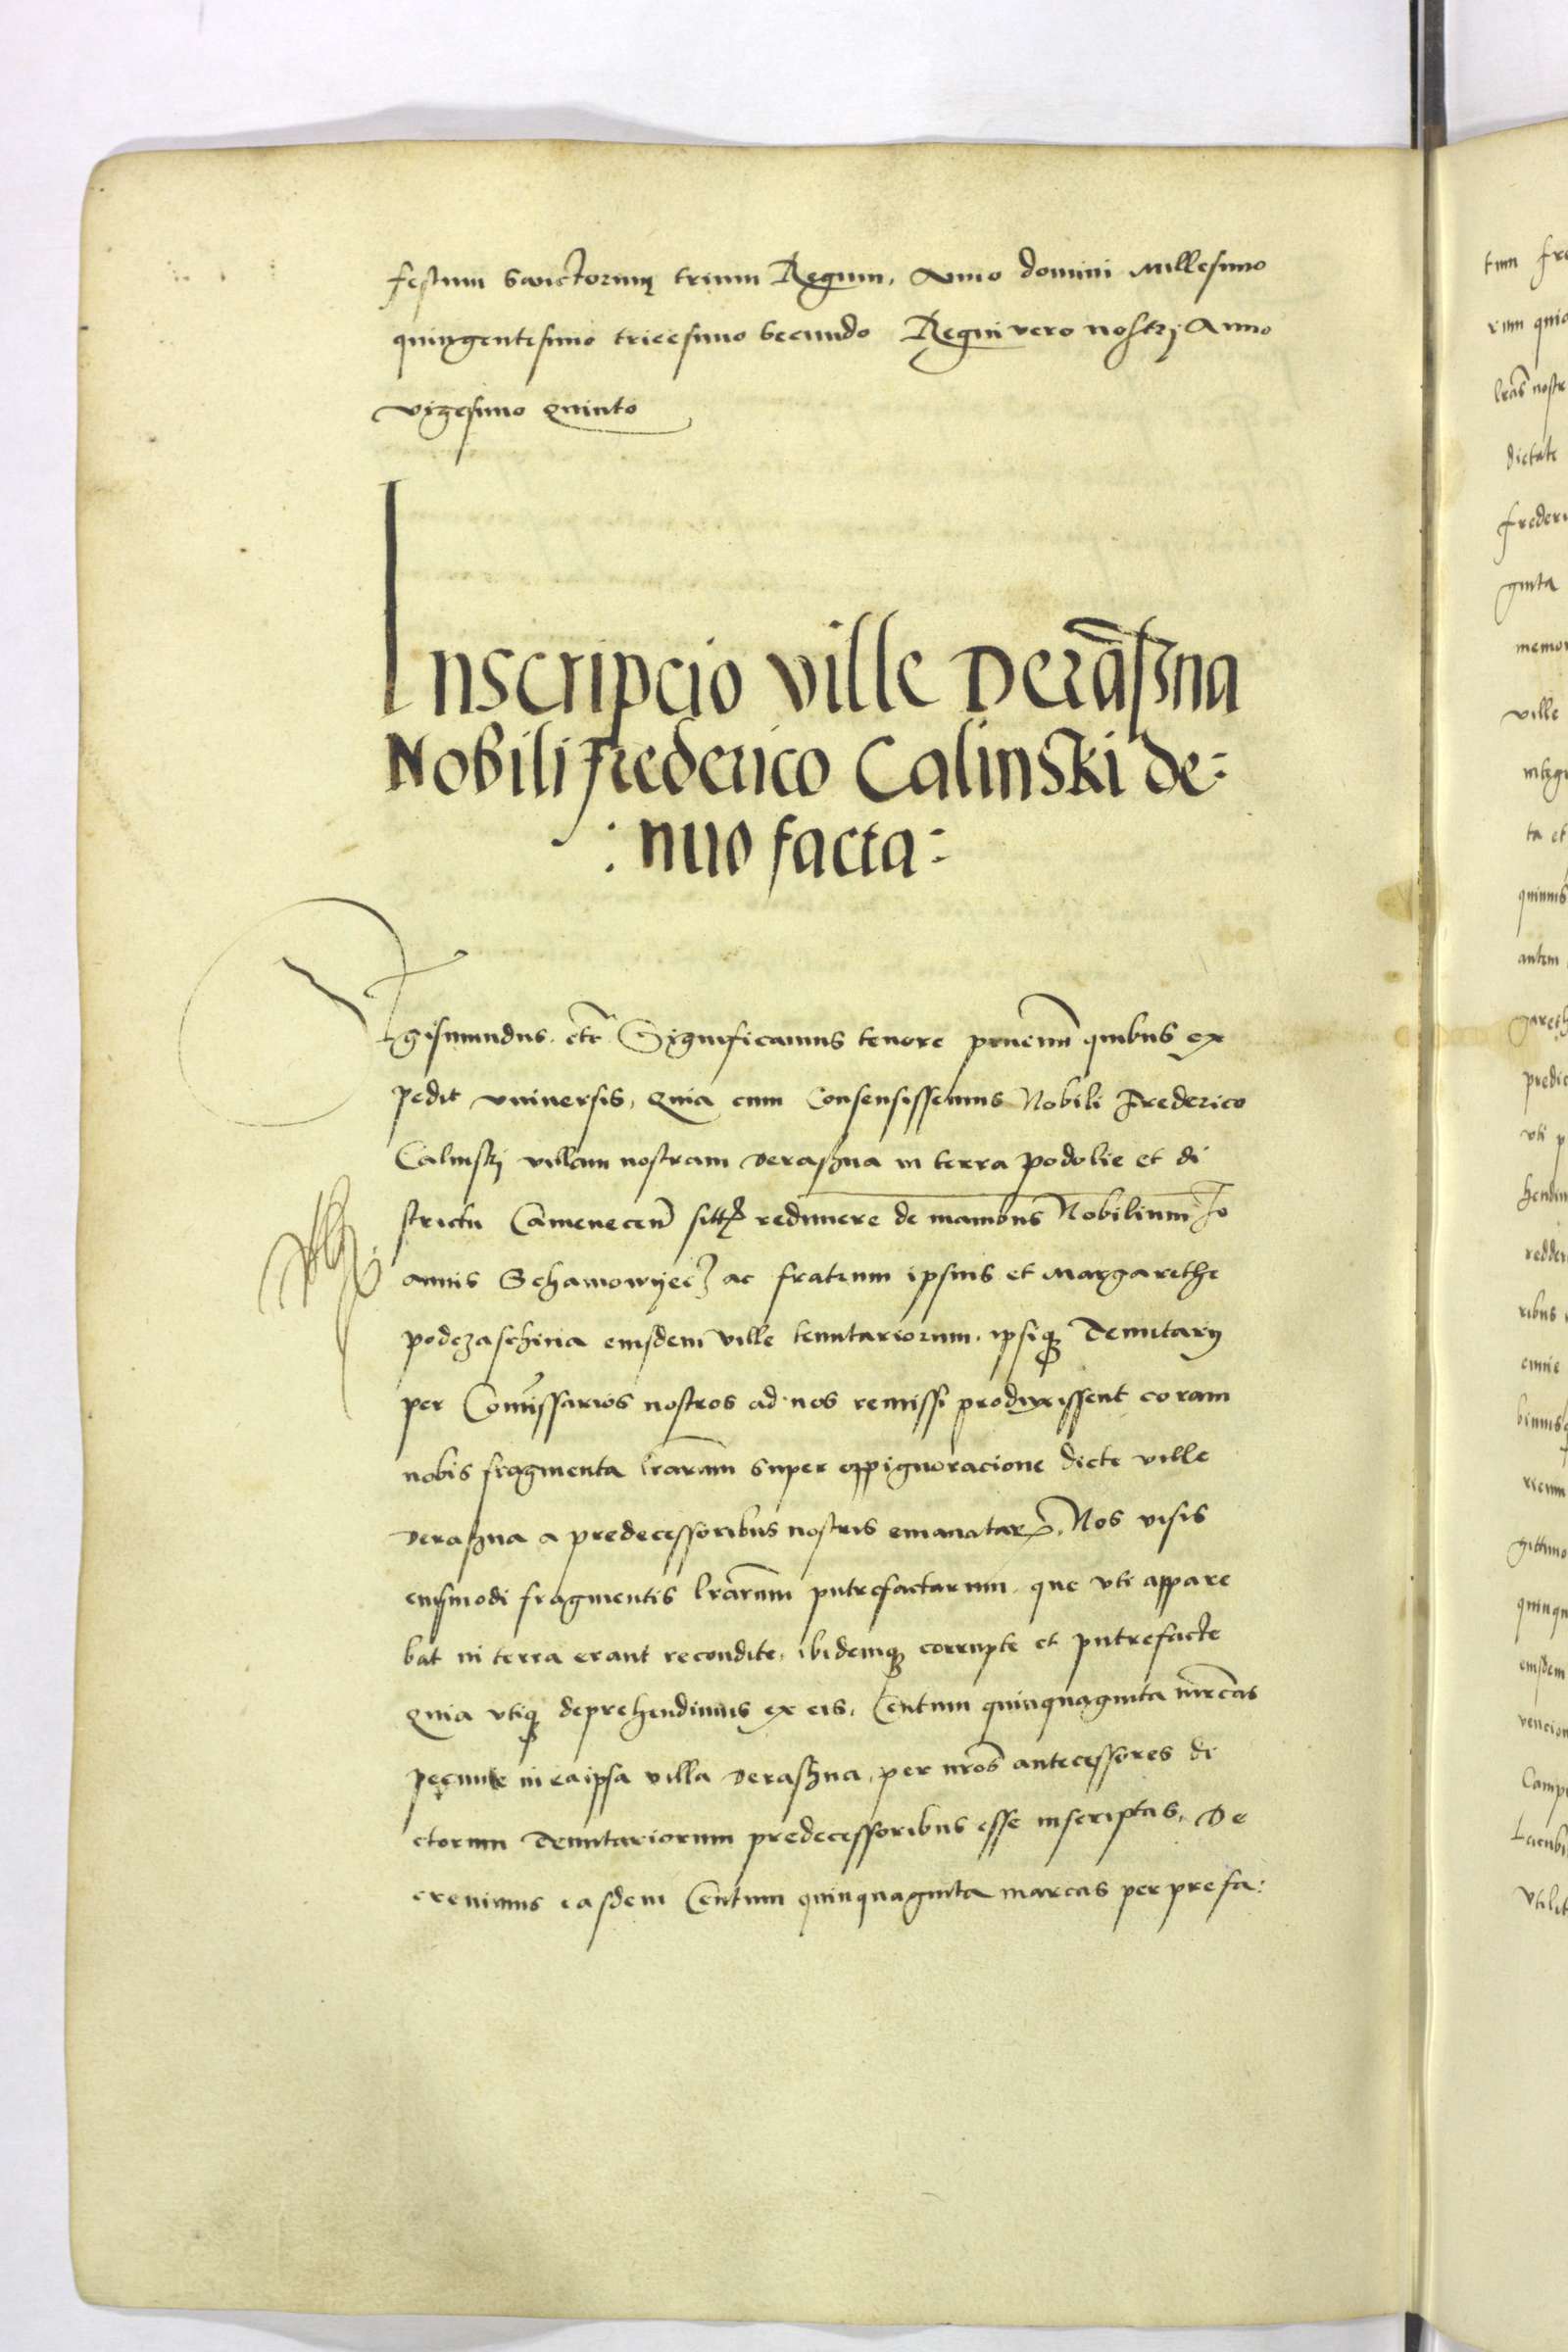 festum Sanctorum trium Regum, Anno domini Millesimo
quingentesimo tricesimo Secundo Regni vero nostrj Anno
vigesimo quinto
Inscripcio ville Deraszna
Nobili Frederico Calinski de:
: nuo facta :
Sigismundus etc Significamus tenore pncium quibus ex
pedit vniuersis, Quia cum Consensissemus Nobili Frederico
Calinskj villam nostram Deraszna in terra Podolie et di
strictu Camenecen sitt redimere de manibus Nobilium Jo
annis Schamowyecz ac fratrum ipsius et Margarethe
podczaschina eiusdem ville tenutariorum, ipsiq Tenutarij
per Comissarios nostros ad nos remissi produxissent coram
nobis fragmenta lrarum super oppignoracione dicte ville
Deraszna a predecessoribus nostris emanatar, Nos visis
eiusmodi fragmentis lrarum putrefactarum, que vti appare
bat in terra erant recondite, ibidemq corrupte et putrefacte
Quia vtiq deprehendimus ex eis, Centum quinquaginta mrcas
pecunie in ea ipsa villa Deraszna, per nros antecessores di
ctorum Tenutariorum predecessoribus esse inscriptas, De
creuimus easdem Centum quinquaginta marcas per prefa: